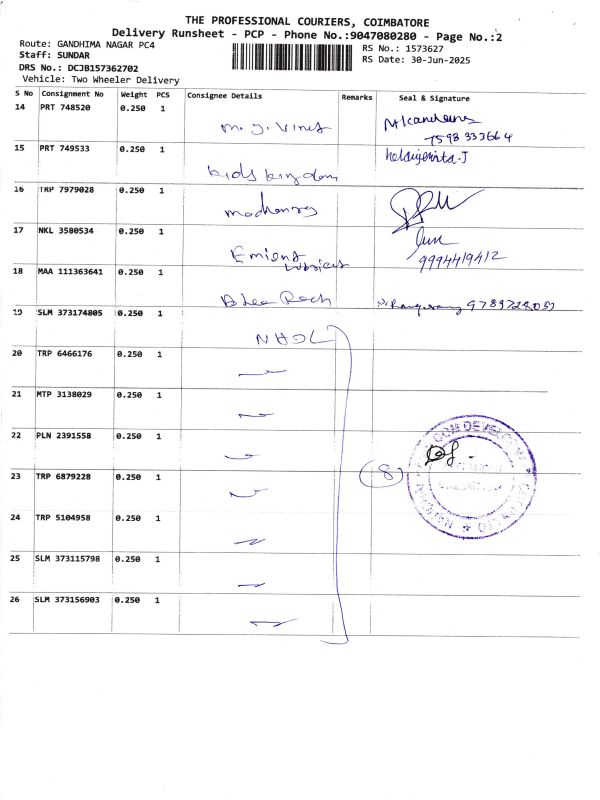 THE PROFESSIONAL COURIERS, COIMBATORE
Delivery Runsheet - PCP - Phone No.:9047080280 - Page No.:2
Route: GANDHIMA NAGAR PC4
RS No.: 1573627
Staff: SUNDAR
RS Date: 30-Jun-2025
DRS No.: DCJB157362702
Vehicle: Two Wheeler Delivery
S No Consignment No Weight PCS Consignee Details Remarks Seal & Signature
14 PRT 748520 0.250 1
7598 333664
15 PRT 749533 0.250 1
Kids kingdom
16 TRP 7979028 0.250 1
17 NKL 3580534 0.250 1
9994419412
18 MAA 111363641 0.250 1
19 SLM 373174805 0.250 1
20 TRP 6466176 0.250 1
21 MTP 3138029 0.250 1
22 PLN 2391558 0.250 1
23 TRP 6879228 0.250 1
8
24 TRP 5104958 0.250 1
25 SLM 373115798 0.250 1
26 SLM 373156903 0.250 1